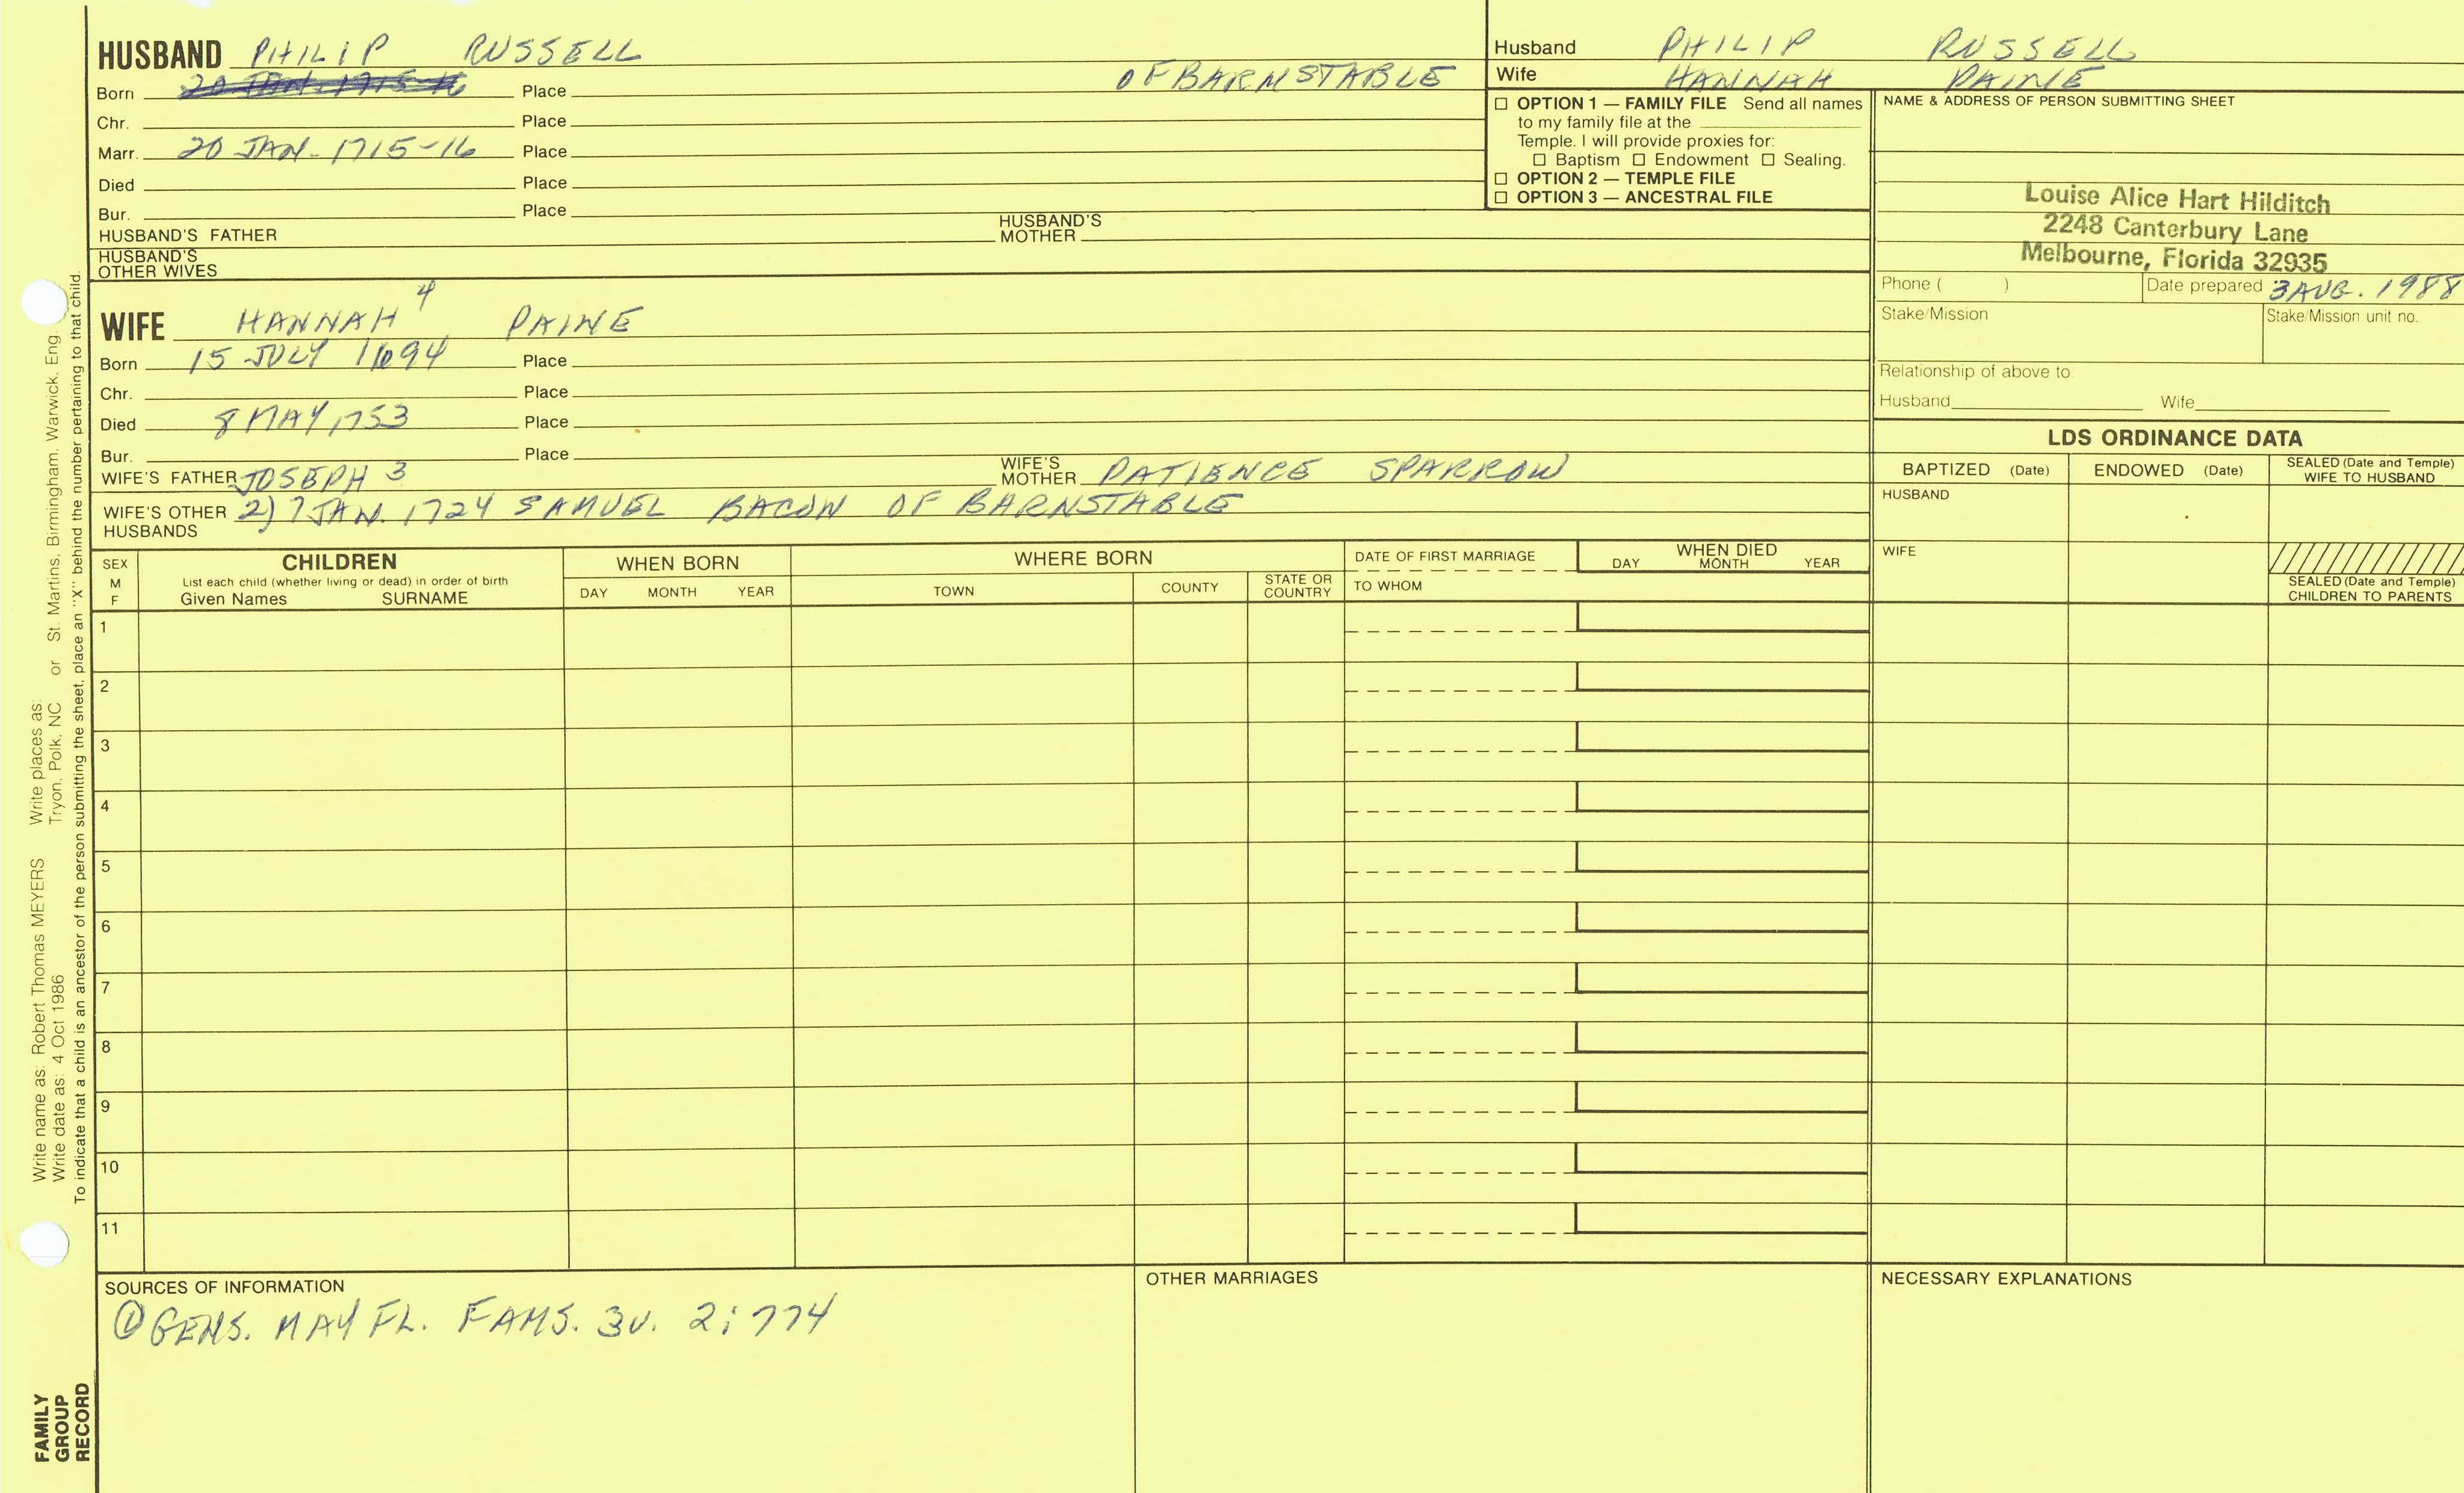 HUSBAND PHILIP RUSSELL
Born 20 JAN. 1715-16 Place OF BARNSTABLE
Chr. Place
Marr. 20 JAN. 1715-16 Place
Died Place
Bur. Place
HUSBAND'S FATHER HUSBAND'S MOTHER
HUSBAND'S OTHER WIVES
Husband PHILIP RUSSELL
Wife HANNAH PAINE
☐ OPTION 1 — FAMILY FILE Send all names
to my family file at the
Temple. I will provide proxies for:
☐ Baptism ☐ Endowment ☐ Sealing.
☐ OPTION 2 — TEMPLE FILE
☐ OPTION 3 — ANCESTRAL FILE
NAME & ADDRESS OF PERSON SUBMITTING SHEET
Louise Alice Hart Hilditch
2248 Canterbury Lane
Melbourne, Florida 32935
Phone ( ) Date prepared 3 AUG. 1988
Stake/Mission Stake/Mission unit no.
Relationship of above to:
Husband Wife
WIFE HANNAH 4 PAINE
Born 15 JULY 1694 Place
Chr. Place
Died 8 MAY, 1753 Place
Bur. Place
WIFE'S FATHER JOSEPH 3 WIFE'S MOTHER PATIENCE SPARROW
WIFE'S OTHER HUSBANDS 2) 7 JAN. 1724 SAMUEL BACON OF BARNSTABLE
LDS ORDINANCE DATA
BAPTIZED (Date) ENDOWED (Date) SEALED (Date and Temple) WIFE TO HUSBAND
HUSBAND
WIFE
SEALED (Date and Temple) CHILDREN TO PARENTS
SEX M F
CHILDREN
List each child (whether living or dead) in order of birth
Given Names SURNAME
WHEN BORN
DAY MONTH YEAR
WHERE BORN
TOWN COUNTY STATE OR COUNTRY
DATE OF FIRST MARRIAGE
TO WHOM
WHEN DIED
DAY MONTH YEAR
1
2
3
4
5
6
7
8
9
10
11
SOURCES OF INFORMATION
① GENS. MAY FL. FAMS. 3V. 2:774
OTHER MARRIAGES
NECESSARY EXPLANATIONS
Write name as: Robert Thomas MEYERS Write places as:
Write date as: 4 Oct 1986 Tryon, Polk, NC or St. Martins, Birmingham, Warwick, Eng.
To indicate that a child is an ancestor of the person submitting the sheet, place an "X" behind the number pertaining to that child.
FAMILY
GROUP
RECORD